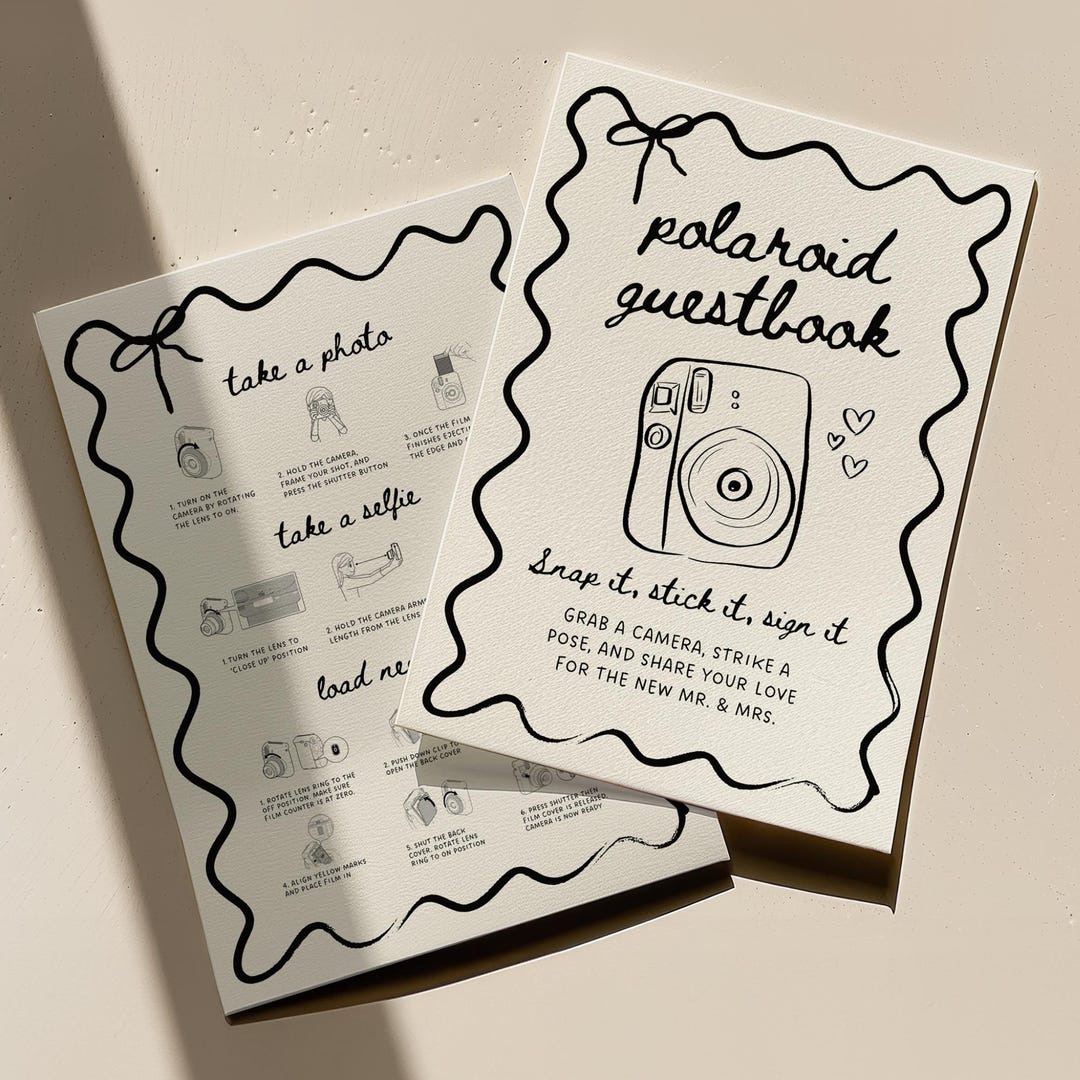 polaroid
guestbook
Snap it, stick it, sign it
GRAB A CAMERA, STRIKE A
POSE, AND SHARE YOUR LOVE
FOR THE NEW MR. & MRS.
take a photo
1. TURN ON THE
CAMERA BY ROTATING
THE LENS TO ON.
2. HOLD THE CAMERA,
FRAME YOUR SHOT, AND
PRESS THE SHUTTER BUTTON
3. ONCE THE FILM
FINISHES
THE EDGE AND
take a selfie
1. TURN THE LENS TO
'CLOSE UP' POSITION
2. HOLD THE CAMERA
LENGTH FROM THE LENS
load
1. ROTATE LENS RING TO THE
OFF POSITION. MAKE SURE
FILM COUNTER IS AT ZERO.
2. PUSH DOWN CLIP TO
OPEN THE BACK COVER
4. ALIGN YELLOW MARKS
AND PLACE FILM IN
5. SHUT THE BACK
COVER. ROTATE LENS
RING TO ON POSITION
6. PRESS SHUTTER THEN
FILM COVER IS RELEASED,
CAMERA IS NOW READY